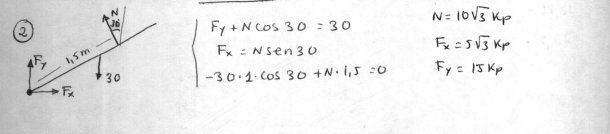 2
N
30
1,5m
Fy
30
Fx
Fy + N cos 30 = 30
Fx = N sen 30
-30·1·cos 30 + N·1,5 = 0
N = 10√3 Kp
Fx = 5√3 Kp
Fy = 15 Kp